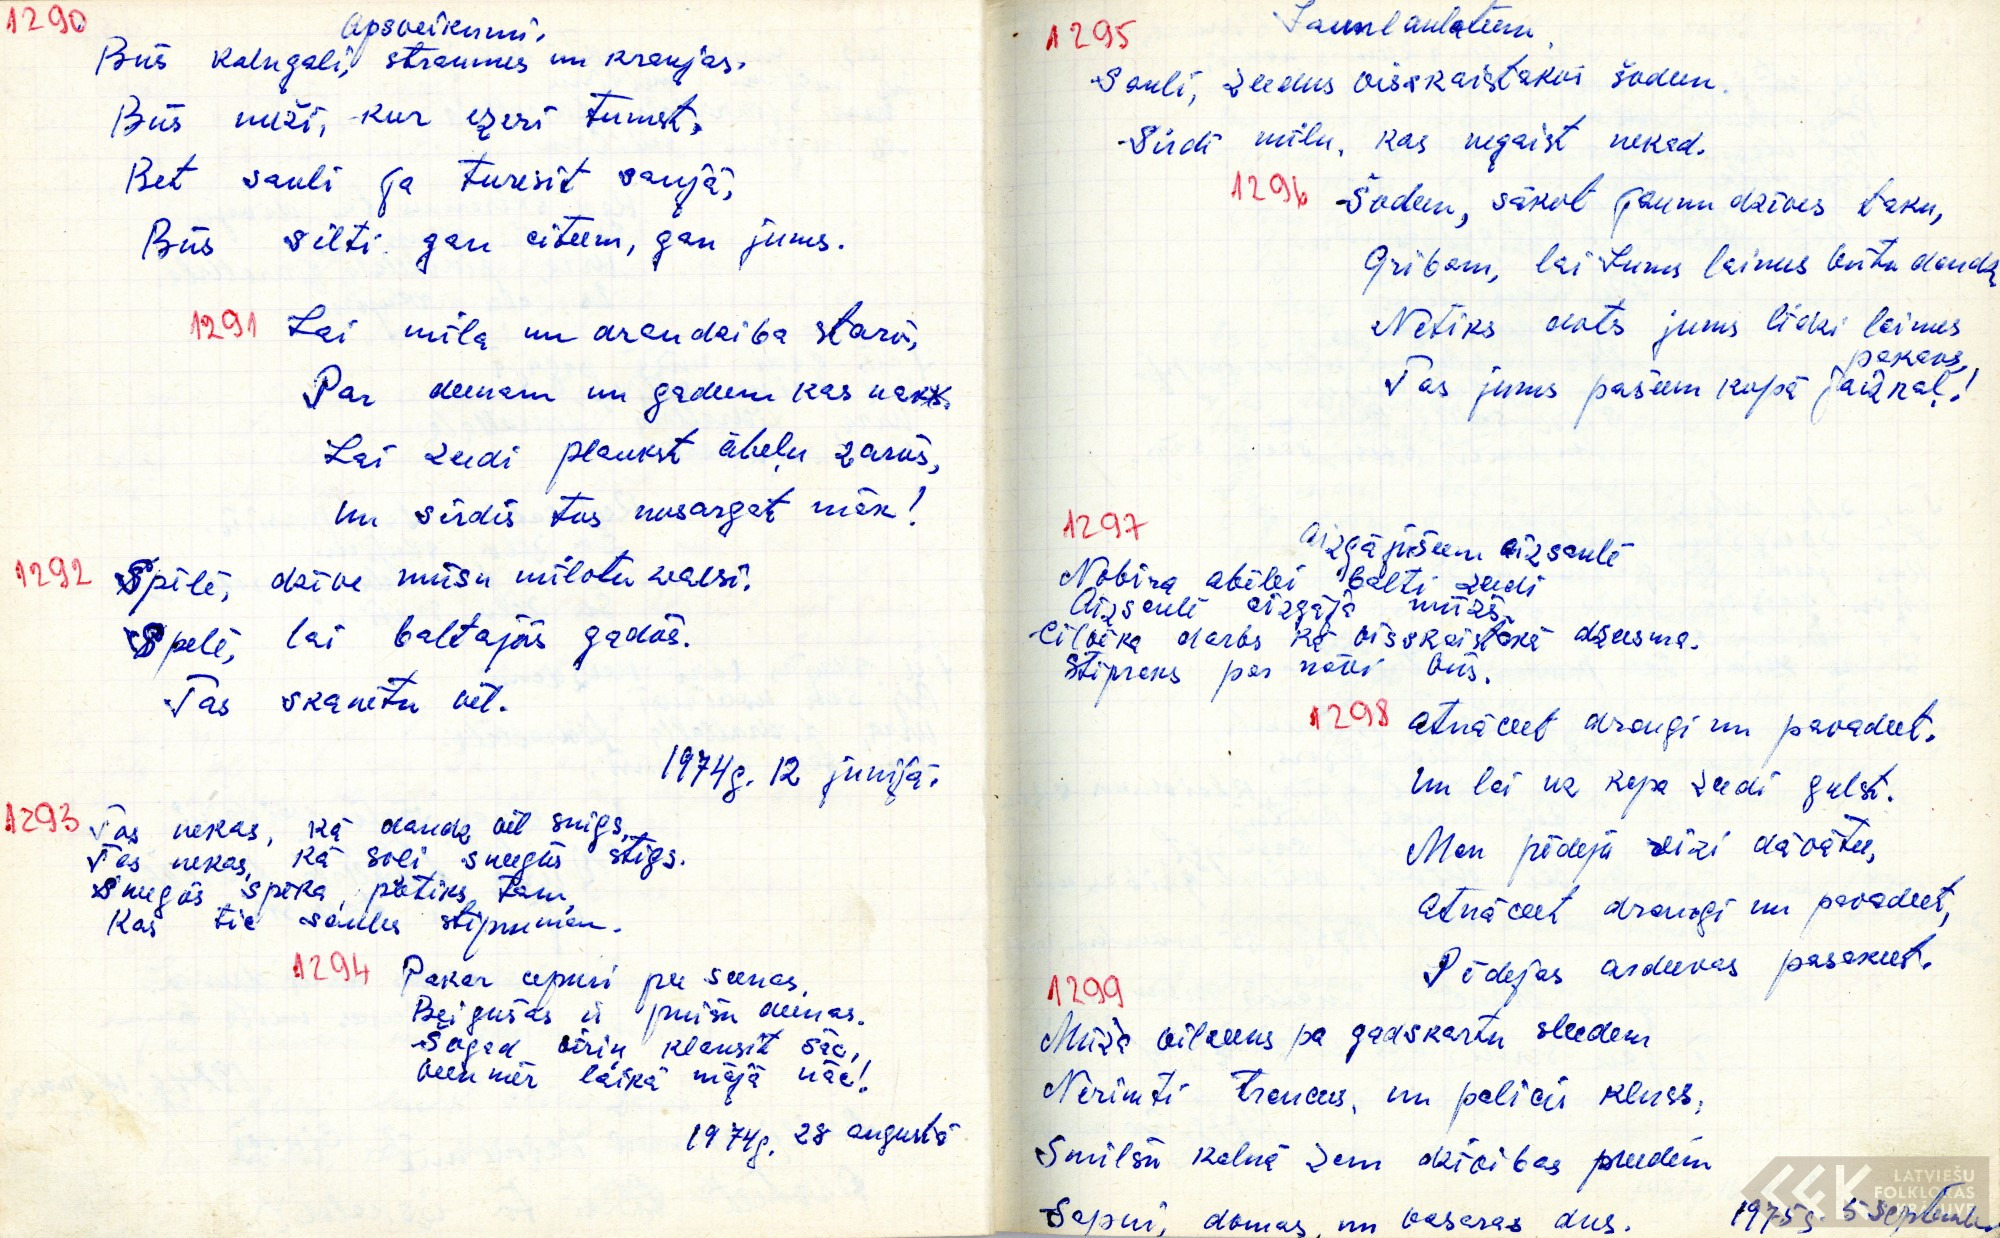 1290
Apsveikumi.
Būs kalngali, straumes un kraujas.
Būs meži, kur ezeri tumst,
Bet sauli ja turēsit saujā,
Būs silti gan citiem, gan jums.
1291 Lai mīla un draudzība staro,
Par dienam un gadiem kas nāks.
Lai ziedi plaukst ābeļu zaros,
un sirdis tos nosargāt māk!
1292 Spēlē, dzīve mūsu mīlotu valsi.
Spēlē, lai baltajos gados.
Tas skanētu vēl.
1974g. 12 junijā.
1293 Tas nekas, kā daudz vēl snigs,
Tas nekas, kā soli sniegos stigs.
Sniegos spēka pietiks tam,
Kas tic saules stiprumam.
1294 Pakar cepuri pie sienas,
Beigušās ir puišu dienas.
Šogad vīriņ klausīt sāc,
vienmēr laikā mājā nāc!
1974g. 28 augustā
1295 Jaunlaulatiem.
Sauli, ziedus visskaistākos šodien.
Sirdī mīlu, kas negaist nekad.
1296 Šodien, sākot jaunu dzīves taku,
Gribam, lai Jums laimes būtu daudz
Netiks dots jums līdzi laimes
pakavs,
Tas jums pašiem kopā jāizkaļ!
1297
Aizgājušiem aizsaulē
Nobira ābelei balti ziedi
Aizsaulē aizgāja mūžs.
Cilvēka darbs kā visskaistākā dziesma.
Stiprāks par nāvi būs.
1298 Atnāciet draugi un pavadiet.
Un lai uz kapa ziedi gulst.
Man pēdējo reizi dāvātie,
Atnāciet draugi un pavadiet,
Pēdejas ardievas pasakiet.
1299
Mūža vilciens pa gadskārtu sliedēm
Nerimti traucas, un palicis kluss,
Smilšu kalnā zem dzīvības priedēm
Sapņi, domas, un vasaras dus.
1975g. 5 Septembr
LATVIEŠU
FOLKLORAS
KRĀTUVE